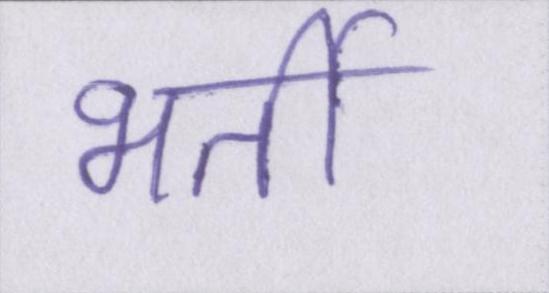 भर्ती